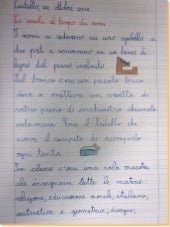 Cantello, 22 ottobre 2012
La scuola al tempo dei nonni
I nonni si sedevano su uno sgabello a
due posti e scrivevano su un banco di
legno dal piano inclinato.
Sul banco c'era un piccolo buco
dove si metteva un vasetto di
vetro pieno di inchiostro chiamato
calamaio. Era il bidello che
aveva il compito di riempirlo
ogni tanto.
In classe c'era una sola maestra
che insegnava tutte le materie:
religione, educazione morale, italiano,
aritmetica e geometria, disegno,